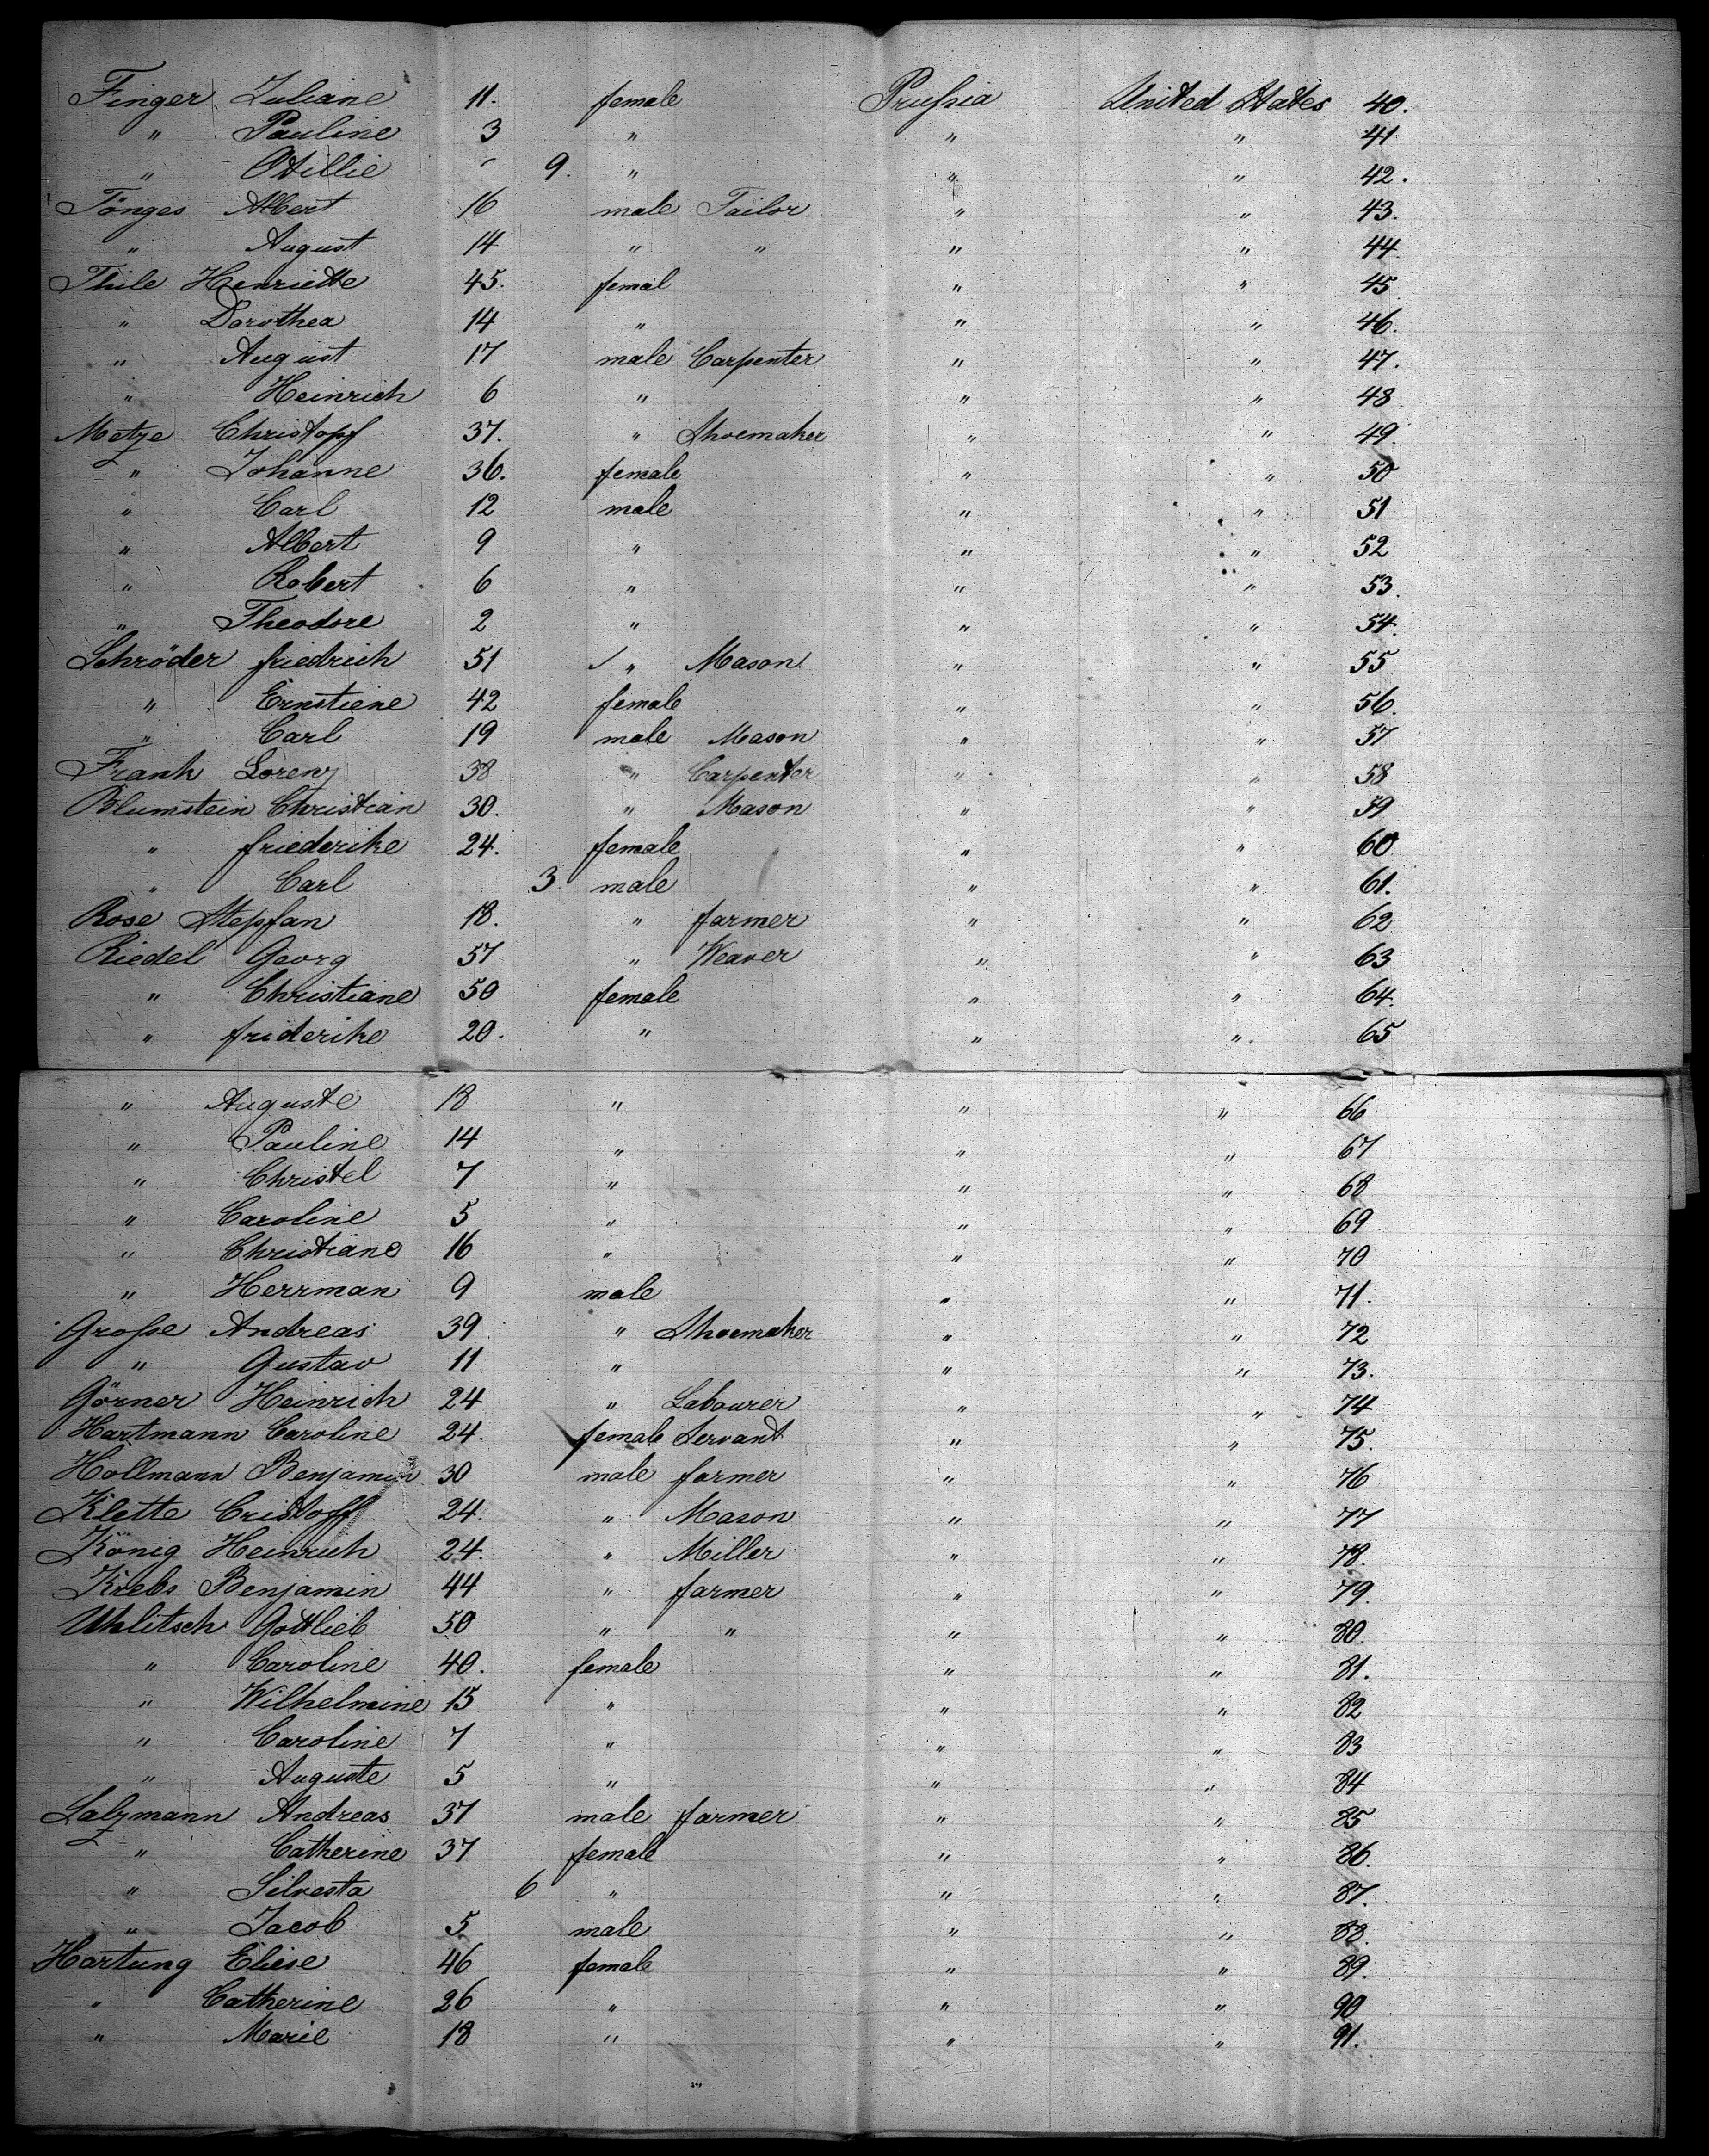 Finger Juliane 11. female Prußia United States 40.
" Pauline 3 " " " 41
" Ottillie - 9. " " " 42.
Tönges Albert 16 male Tailor " " 43.
" August 14 " " " " 44.
Thile Henriette 45. femal " " 45
" Dorothea 14 " " " 46.
" August 17 male Carpenter " " 47.
" Heinrich 6 " " " 48
Metze Christopf 37. " Shoemaker " " 49.
" Johanne 36. female " " 50
" Carl 12 male " " 51
" Albert 9 " " " 52
" Robert 6 " " " 53.
" Theodore 2 " " " 54.
Schröder friedrich 51 " Mason " " 55
" Ernstiene 42 female " " 56.
" Carl 19 male Mason " " 57
Frank Lorenz 38 " Carpenter " " 58
Blumstein Christian 30. " Mason " " 59
" friederike 24. female " " 60
" Carl 3 male " " 61.
Rose Stepfan 18. " farmer " " 62
Riedel Georg 57 " Weaver " " 63
" Christiane 50 female " " 64.
" friderike 20. " " " 65
" Auguste 18 " " " 66
" Pauline 14 " " " 67
" Christel 7 " " " 68
" Caroline 5 " " " 69
" Christiane 16 " " " 70
" Herrman 9 male " " 71.
Große Andreas 39 " Shoemaker " " 72
" Gustav 11 " " " 73.
Görner Heinrich 24 " Labourer " " 74
Hartmann Caroline 24. female Servant " " 75.
Hollmann Benjamin 30 male farmer " " 76
Klette Cristoff 24. " Mason " " 77
König Heinrich 24. " Miller " " 78.
Krebs Benjamin 44 " farmer " " 79.
Uhlitsch Gottlieb 50 " " " " 80.
" Caroline 40. female " " 81.
" Wilhelmine 15 " " " 82
" Caroline 7 " " " 83
" Auguste 5 " " " 84
Salzmann Andreas 37 male farmer " " 85
" Catherine 37 female " " 86.
" Silvesta 6 " " " 87.
" Jacob 5. male " " 88.
Hartung Eliese 46 female " " 89.
" Catherine 26 " " " 90
" Marie 18 " " " 91.